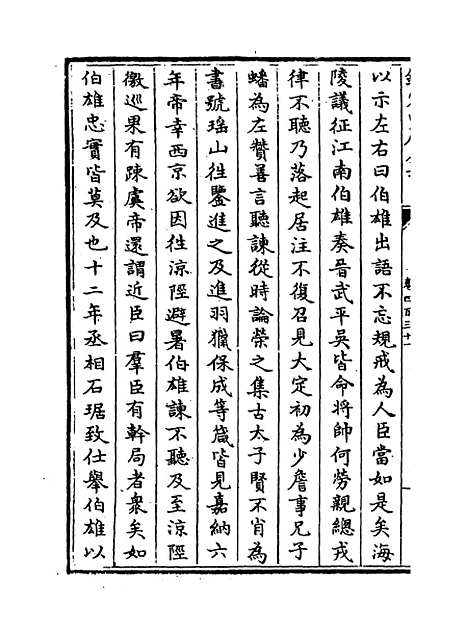 以示左右曰伯雄出語不忘規戒為人臣當如是矣海
陵議征江南伯雄奏晉武平吳皆命將帥何勞親總戎
律不聽乃落起居注不復召見大定初為少詹事兄子
蟠為左贊善言聽諫從時論榮之集古太子賢不肖為
書號瑶山徃鑒進之及進羽獵保成等箴皆見嘉納六
年帝幸西京欲因徃涼陘避暑伯雄諫不聽及至涼陘
徼巡果有踈虞帝還謂近臣曰羣臣有幹局者衆矣如
伯雄忠實皆莫及也十二年丞相石琚致仕舉伯雄以
卷四百三十一